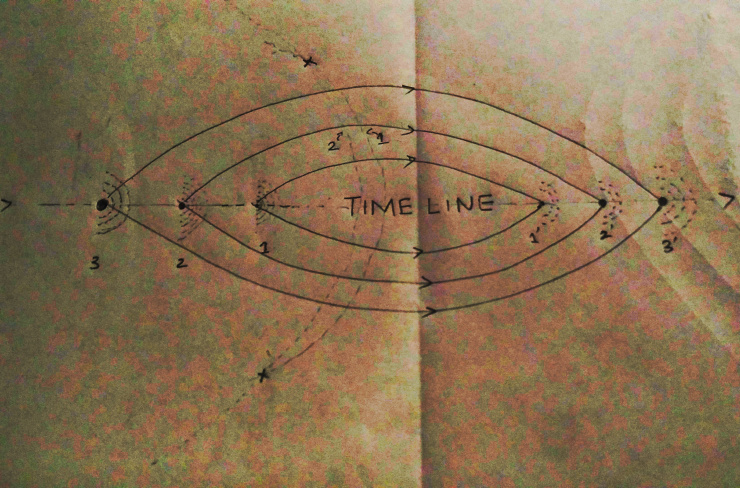 2' 1
TIME LINE
3 2 1 1' 2' 3'